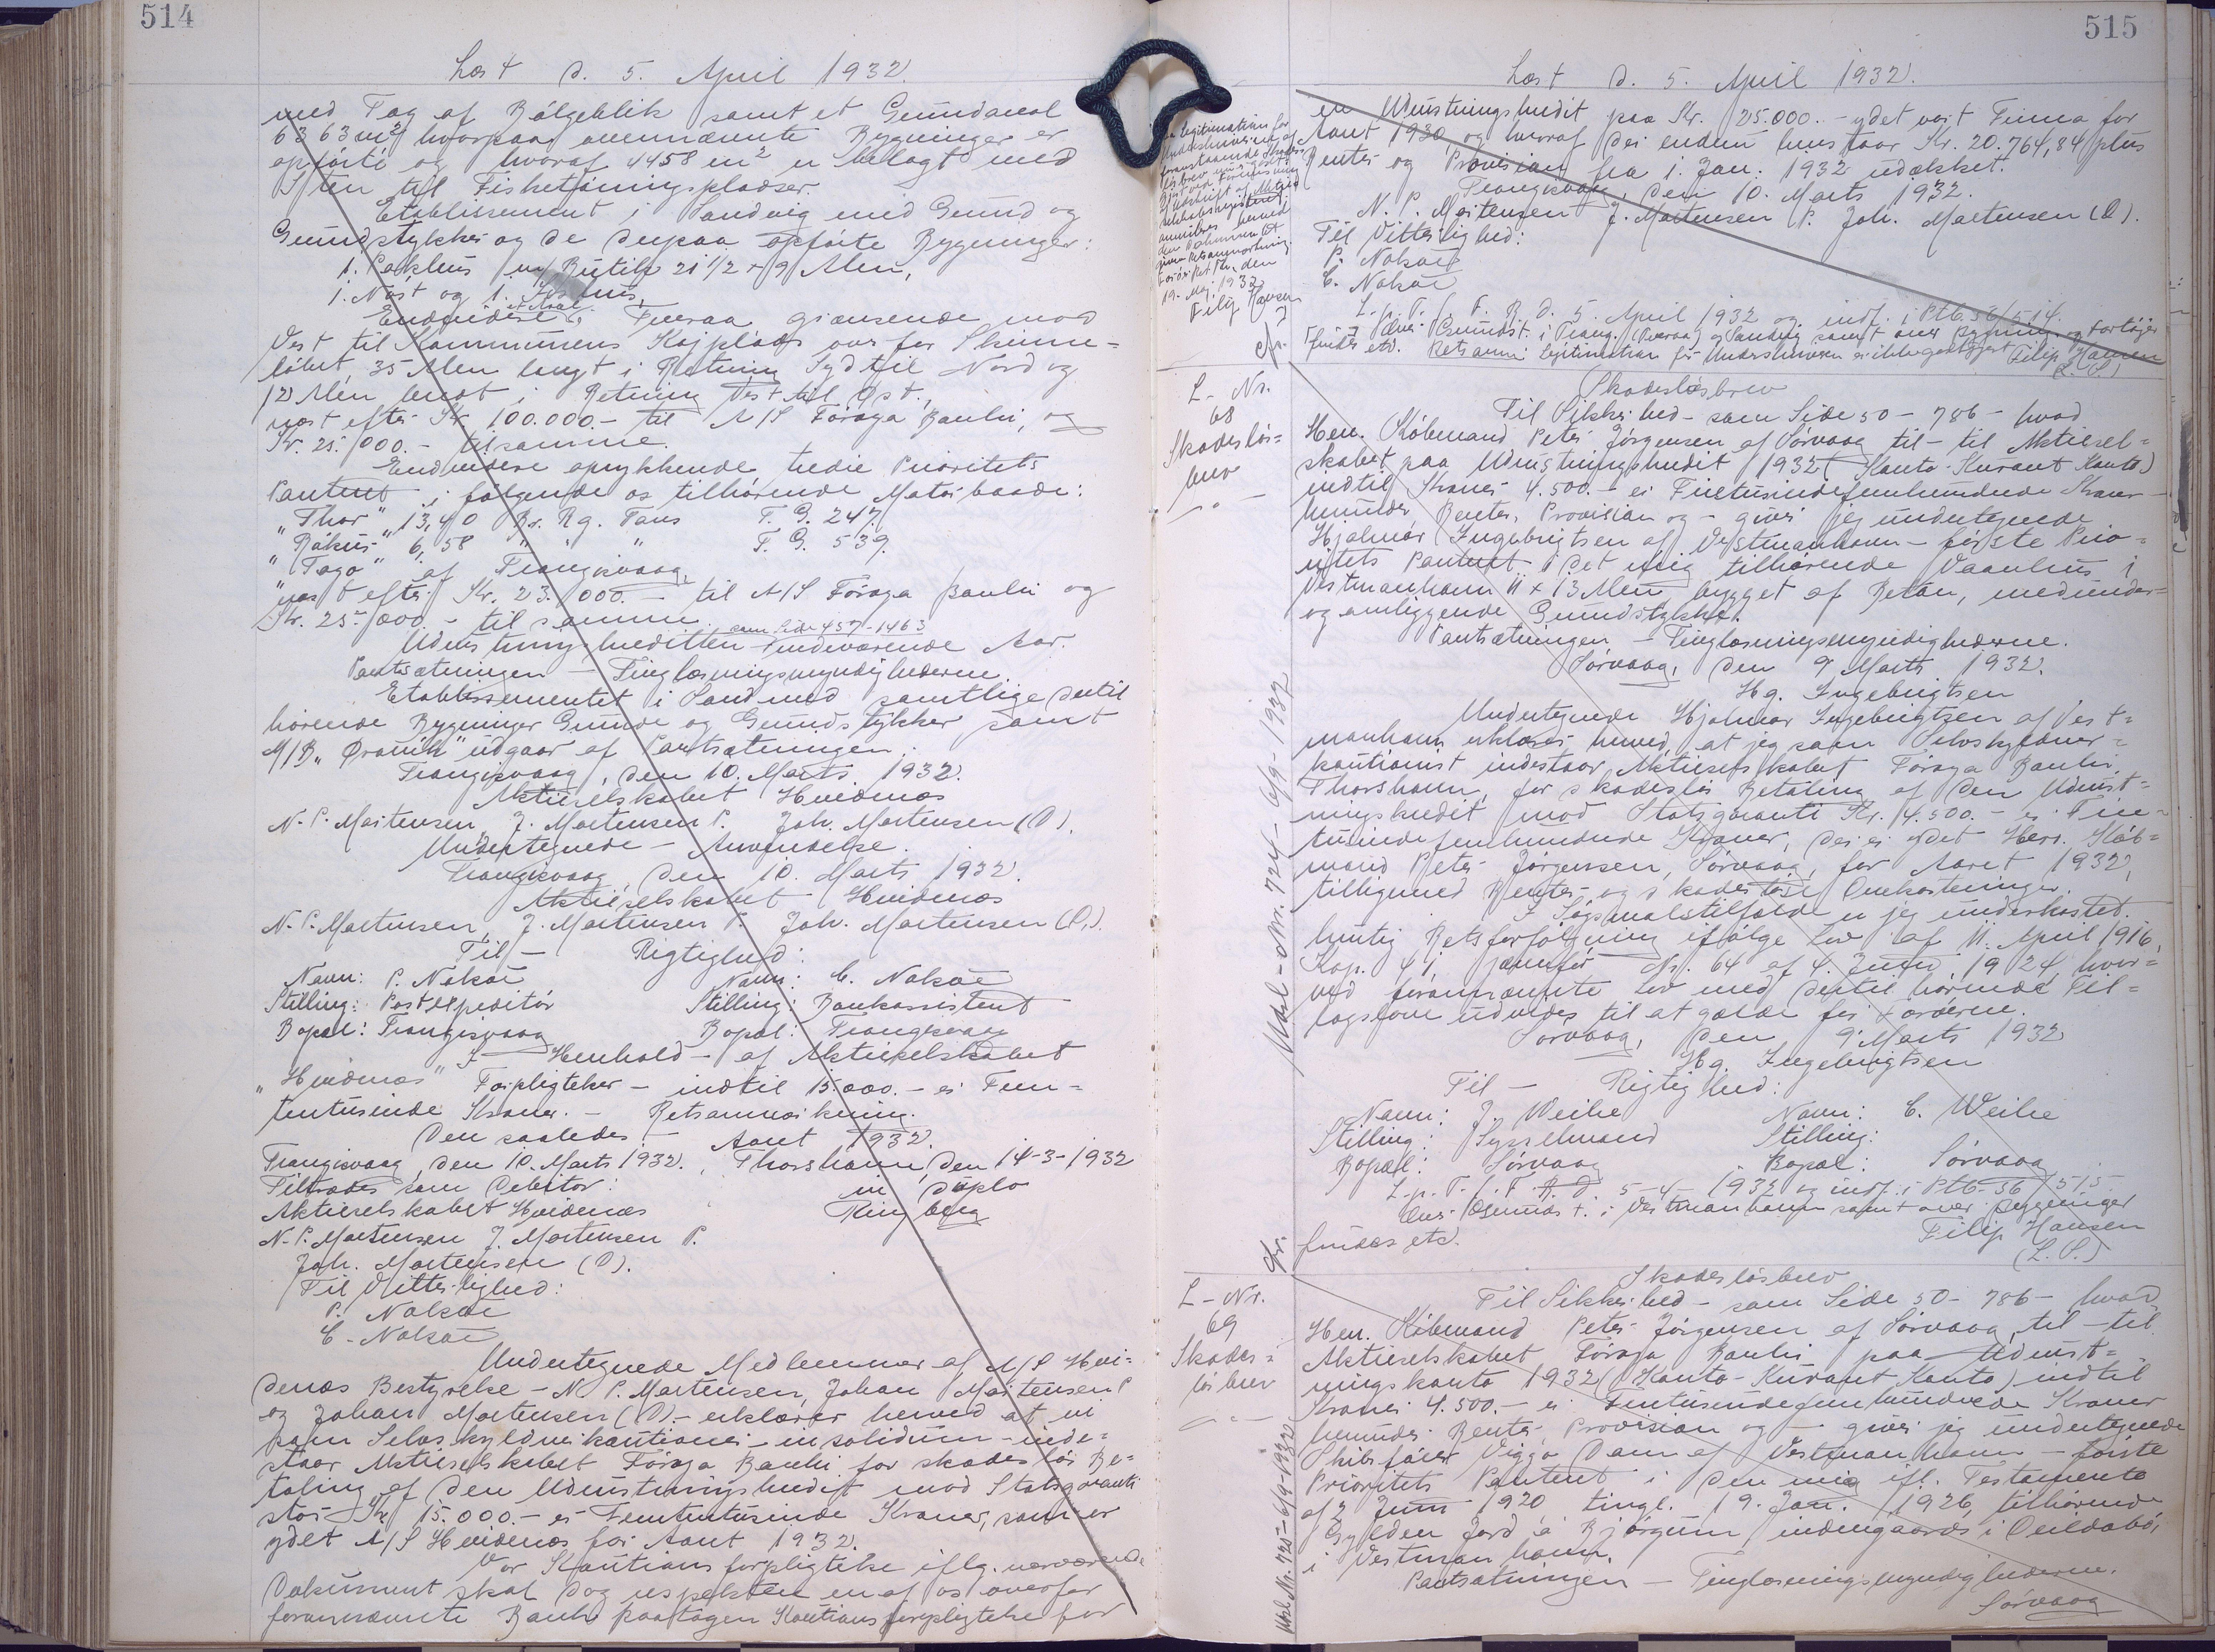 514
Læst d. 5. April 1932.
med Tag af Bølgeblik samt et Grundareal
6363 m² hvorpaa ovennævnte Bygninger er
opført og hvoraf 4458 m² er belagt med
Sten til Fisketørringspladser.
Etablissement i Sandvig med Grund og
Grundstykker og de derpaa opførte Bygninger:
1. Pakhus m/ Butik 21 1/2 x 9 Alen,
1. Nøst og 1.
Endvidere et Areal i Tveraa grænsende mod
Vest til Kommunens Kajplads over for Skinne-
løbet 35 Alen langt i Retning Syd til Nord og
12 Alen bredt i Retning Vest til Øst.,
næst efter Kr. 100.000.- til A/S Føroya Banki, og
Kr. 25.000.- til samme.
Endvidere oprykkende tredie Prioritets
Panteret i følgende os tilhørende Motorbaade:
"Thor" 13,40 Br. Rg. Tons T. G. 247.
"Bákur" 6,58 " " " T. G. 539.
"Tago" af Trangisvaag,
næst efter Kr. 23.000.- til A/S Føroya Banki og
Kr. 25.000.- til samme.
som Side 457-1463
Udrustningskreditten - indeværende Aar.
Pantsætningen - Tinglæsningsmyndighederne.
Etablissementet i Sand med samtlige dertil
hørende Bygninger Grunde og Grundstykker samt
M/B "Øravík" udgaar af Pantsætningen.
Trangisvaag, den 10. Marts 1932.
Aktieselskabet Hvidenæs
N. P. Mortensen, J. Mortensen P. Joh. Mortensen (D).
Undertegnede - Anvendelse.
Trangisvaag, den 10. Marts 1932.
Aktieselskabet Hvidenæs
N. P. Mortensen, J. Mortensen P. Joh. Mortensen (D.).
Til - Rigtighed:
Navn: P. Nolsøe Navn: C. Nolsøe
Stilling: Postexpeditør Stilling: Bankassistent
Bopæl: Trangisvaag Bopæl: Trangisvaag
I Henhold - af Aktieselskabet
"Hvidenæs" Forpligtelser - indtil 15.000.- er Fem-
tentusinde Kroner. - Retsanmærkning.
Den saaledes - Aaret 1932.
Trangisvaag, den 10. Marts 1932. Thorshavn, den 14-3-1932
Tiltrædes som Debitor: in duplo
Aktieselskabet Hvidenæs Ringberg
N. P. Mortensen J. Mortensen P.
Joh. Mortensen (D).
Til Vitterlighed:
P. Nolsøe
C. Nolsøe
Undertegnede Medlemmer af A/S Hvi-
denæs Bestyrelse - N. P. Mortensen, Johan Mortensen P
og Johan Mortensen (D).- erklærer herved at vi
som Selvskyldnerkautioner - in solidum - inde-
staar Aktieselskabet Føroya Banki for skadesløs Be-
taling af den Udrustningskredit mod Statsgaranti
stor Kr. 15.000.- er Femtentusinde Kroner, som er
ydet A/S Hvidenæs for Aaret 1932.
Vor Kautionsforpligtelse iflg. nærværende
Dokument skal dog respektere en af os overfor
forannævnte Bank paatagen Kautionsforpligtelse for
515
Læst d. 5. April 1932.
en Udrustningskredit paa Kr. 25.000.- ydet vort Firma for
Aaret 1930, og hvoraf der endnu henstaar Kr. 20.764,84 plus
Renter og Provision fra 1. Jan. 1932 udækket.
Trangisvaag, den 10. Marts 1932.
N. P. Mortensen J. Mortensen P. Joh. Mortensen (D).
Til Vitterlighed:
P. Nolsøe
C. Nolsøe
L. p. T. f. F. R. D. 5. April 1932 og indf. i Ptb. 36/514.
Over Grundst. i Trang. (Tveraa) og Sandvig samt over Bygning og Fartøjer
findes etc. Retsanm: Legitimation for Underskriveren er ikke godtgjort Filip Hansen
(L. S.)
Legitimation for
Underskriverne af
foranstaaende Skades-
løsbrev
19. Maj 1932
Filip Hansen
L - Nr.
68
Skadesløs-
brev
Skadesløsbrev
Til Sikkerhed - som Side 50 - 786 - hvad
Herr. Købmand Peter Jørgensen af Sørvaag til - til Aktiesel-
skabet paa Udrustningskredit 1932 (Konto-Kurant Konto)
indtil Kroner 4.500.- er Firetusindefemhundrede Kroner -
herunder Renter, Provision og - giver jeg undertegnede
Hjalmar Ingebrigtsen af Vestmanhavn - første Prio-
ritets Panteret i det mig tilhørende Vaanhus i
Vestmanhavn 11 x 13 Alen, bygget af Beton, med under-
og omliggende Grundstykke.
Pantsætningen - Tinglæsningsmyndighederne.
Sørvaag, den 9' Marts 1932.
Hg. Ingebrigtsen
Undertegnede Hjalmar Ingebrigtsen af Vest-
manhavn erklærer herved, at jeg som Selvskyldner-
kautionist indestaar Aktieselskabet Føroya Banki,
Thorshavn, for skadesløs Betaling af den Udrust-
ningskredit mod Statsgaranti Kr. 4.500.- er Fire-
tusindefemhundrede Kroner, der er ydet Herr. Køb-
mand Peter Jørgensen, Sørvaag, for Aaret 1932,
tilligemed Renter og skadesløse Omkostninger.
I Søgsmaalstilfælde er jeg underkastet
hurtig Retsforfølgning ifølge Lov af 11. April 1916,
Kap. 41, jævnfør Nr. 64 af 4. Juni 1924, hvor-
ved forannævnte Lov med dertil hørende Til-
lægslove udvides til at gælde for Færøerne.
Sørvaag, den 9' Marts 1932
Hg. Ingebrigtsen
Til - Rigtighed:
Navn: J. Weihe Navn: C. Weihe
Stilling: Sysselmand Stilling:
Bopæl: Sørvaag Bopæl: Sørvaag
L. p. T. f. F. R. D. 5-4-1932 og indf. i Ptb. 36/515.
Over Grundst. i Vestmanhavn samt over Bygninger
findes etc. Filip Hansen
(L. S.)
Udsl-Nr. 724-6/9-1932
L - Nr.
69
Skades-
løsbrev
Skadesløsbrev
Til Sikkerhed - som Side 50 - 786 - hvad
Herr. Købmand Peter Jørgensen af Sørvaag, til - til
Aktieselskabet Føroya Banki paa Udrust-
ningskonto 1932 (Konto-Kurant Konto) indtil
Kroner 4.500.- er Firetusindefemhundrede Kroner
herunder Renter, Provision og - giver jeg undertegnede
Skibsfører Viggo Dam af Vestmanhavn - første
Prioritets Panteret i den mig ifl. Testamente
af 2 Juni 1920 tingl. 19. Jan. 1926, tilhørende
Gylden Jord á Bjørgum, indengaards i
i Vestmanhavn.
Pantsætningen - Tinglæsningsmyndighederne.
Sørvaag
Udsl.Nr. 725-6/9-1932